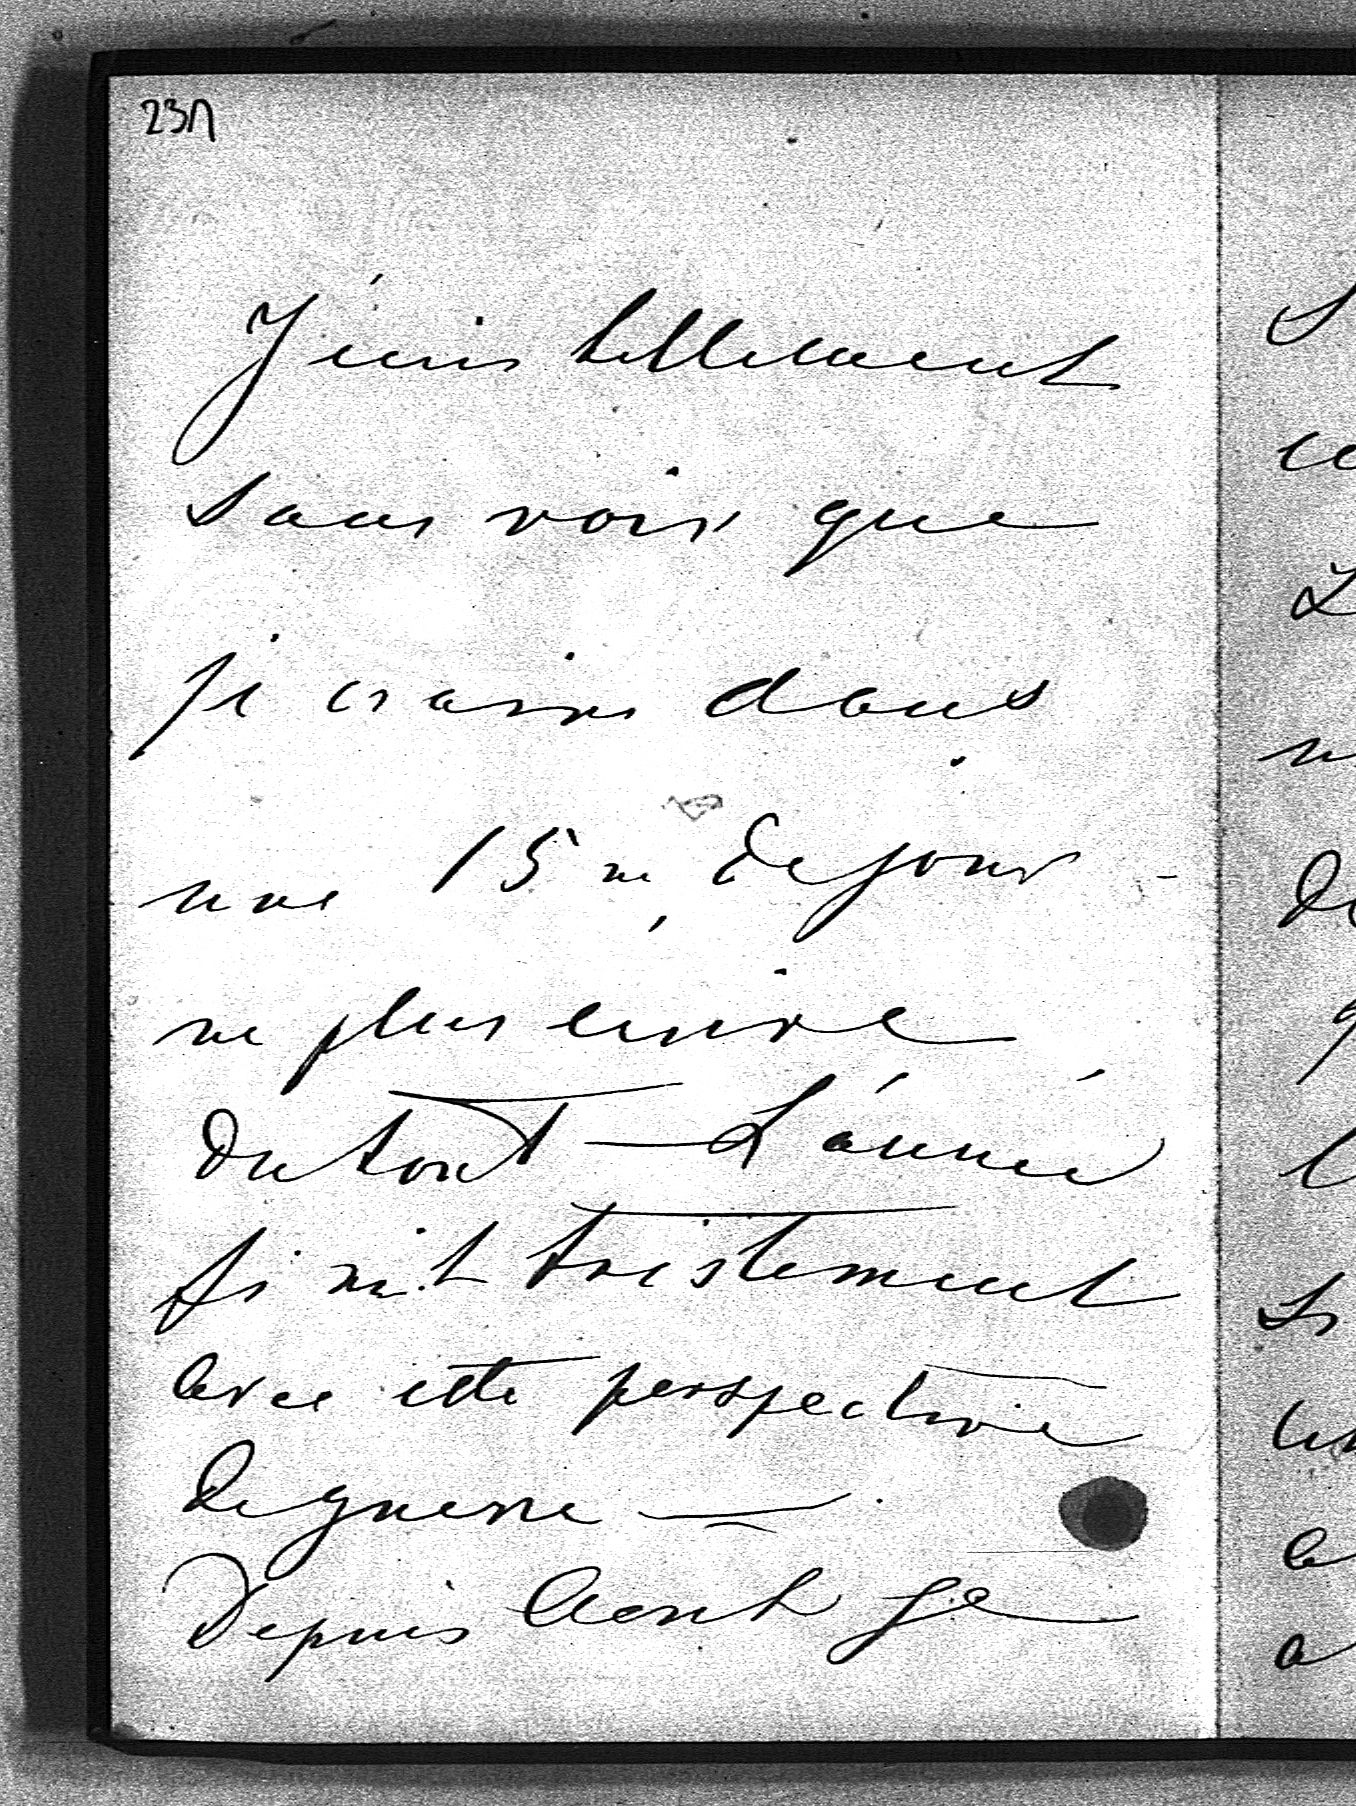 237
J'écris tellement
sans voir que
je crains dans
une 15ne de jours
ne plus écrire
du tout — L'année
finit tristement
avec cette perspective
de guerre —
Depuis Aout je